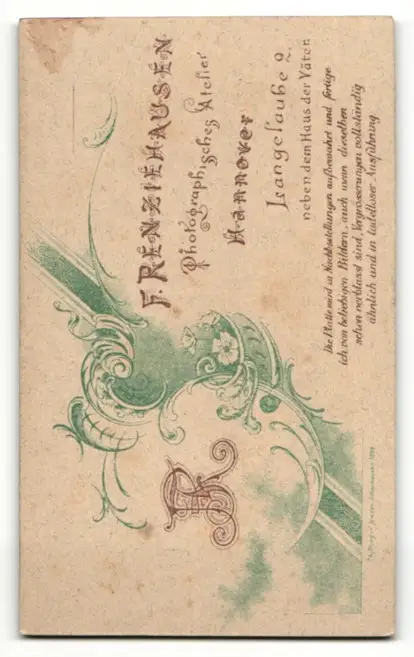 F. RENZIEHAUSEN
Photographisches Atelier
Hannover
Langelaube 2.
neben dem Haus der Väter
Die Platte wird zu Nachbestellungen aufbewahrt und fertige
ich von beliebigen Bildern, auch wenn dieselben
schon verblasst sind, Vergrösserungen vollständig
ähnlich und in tadelloser Ausführung
FR